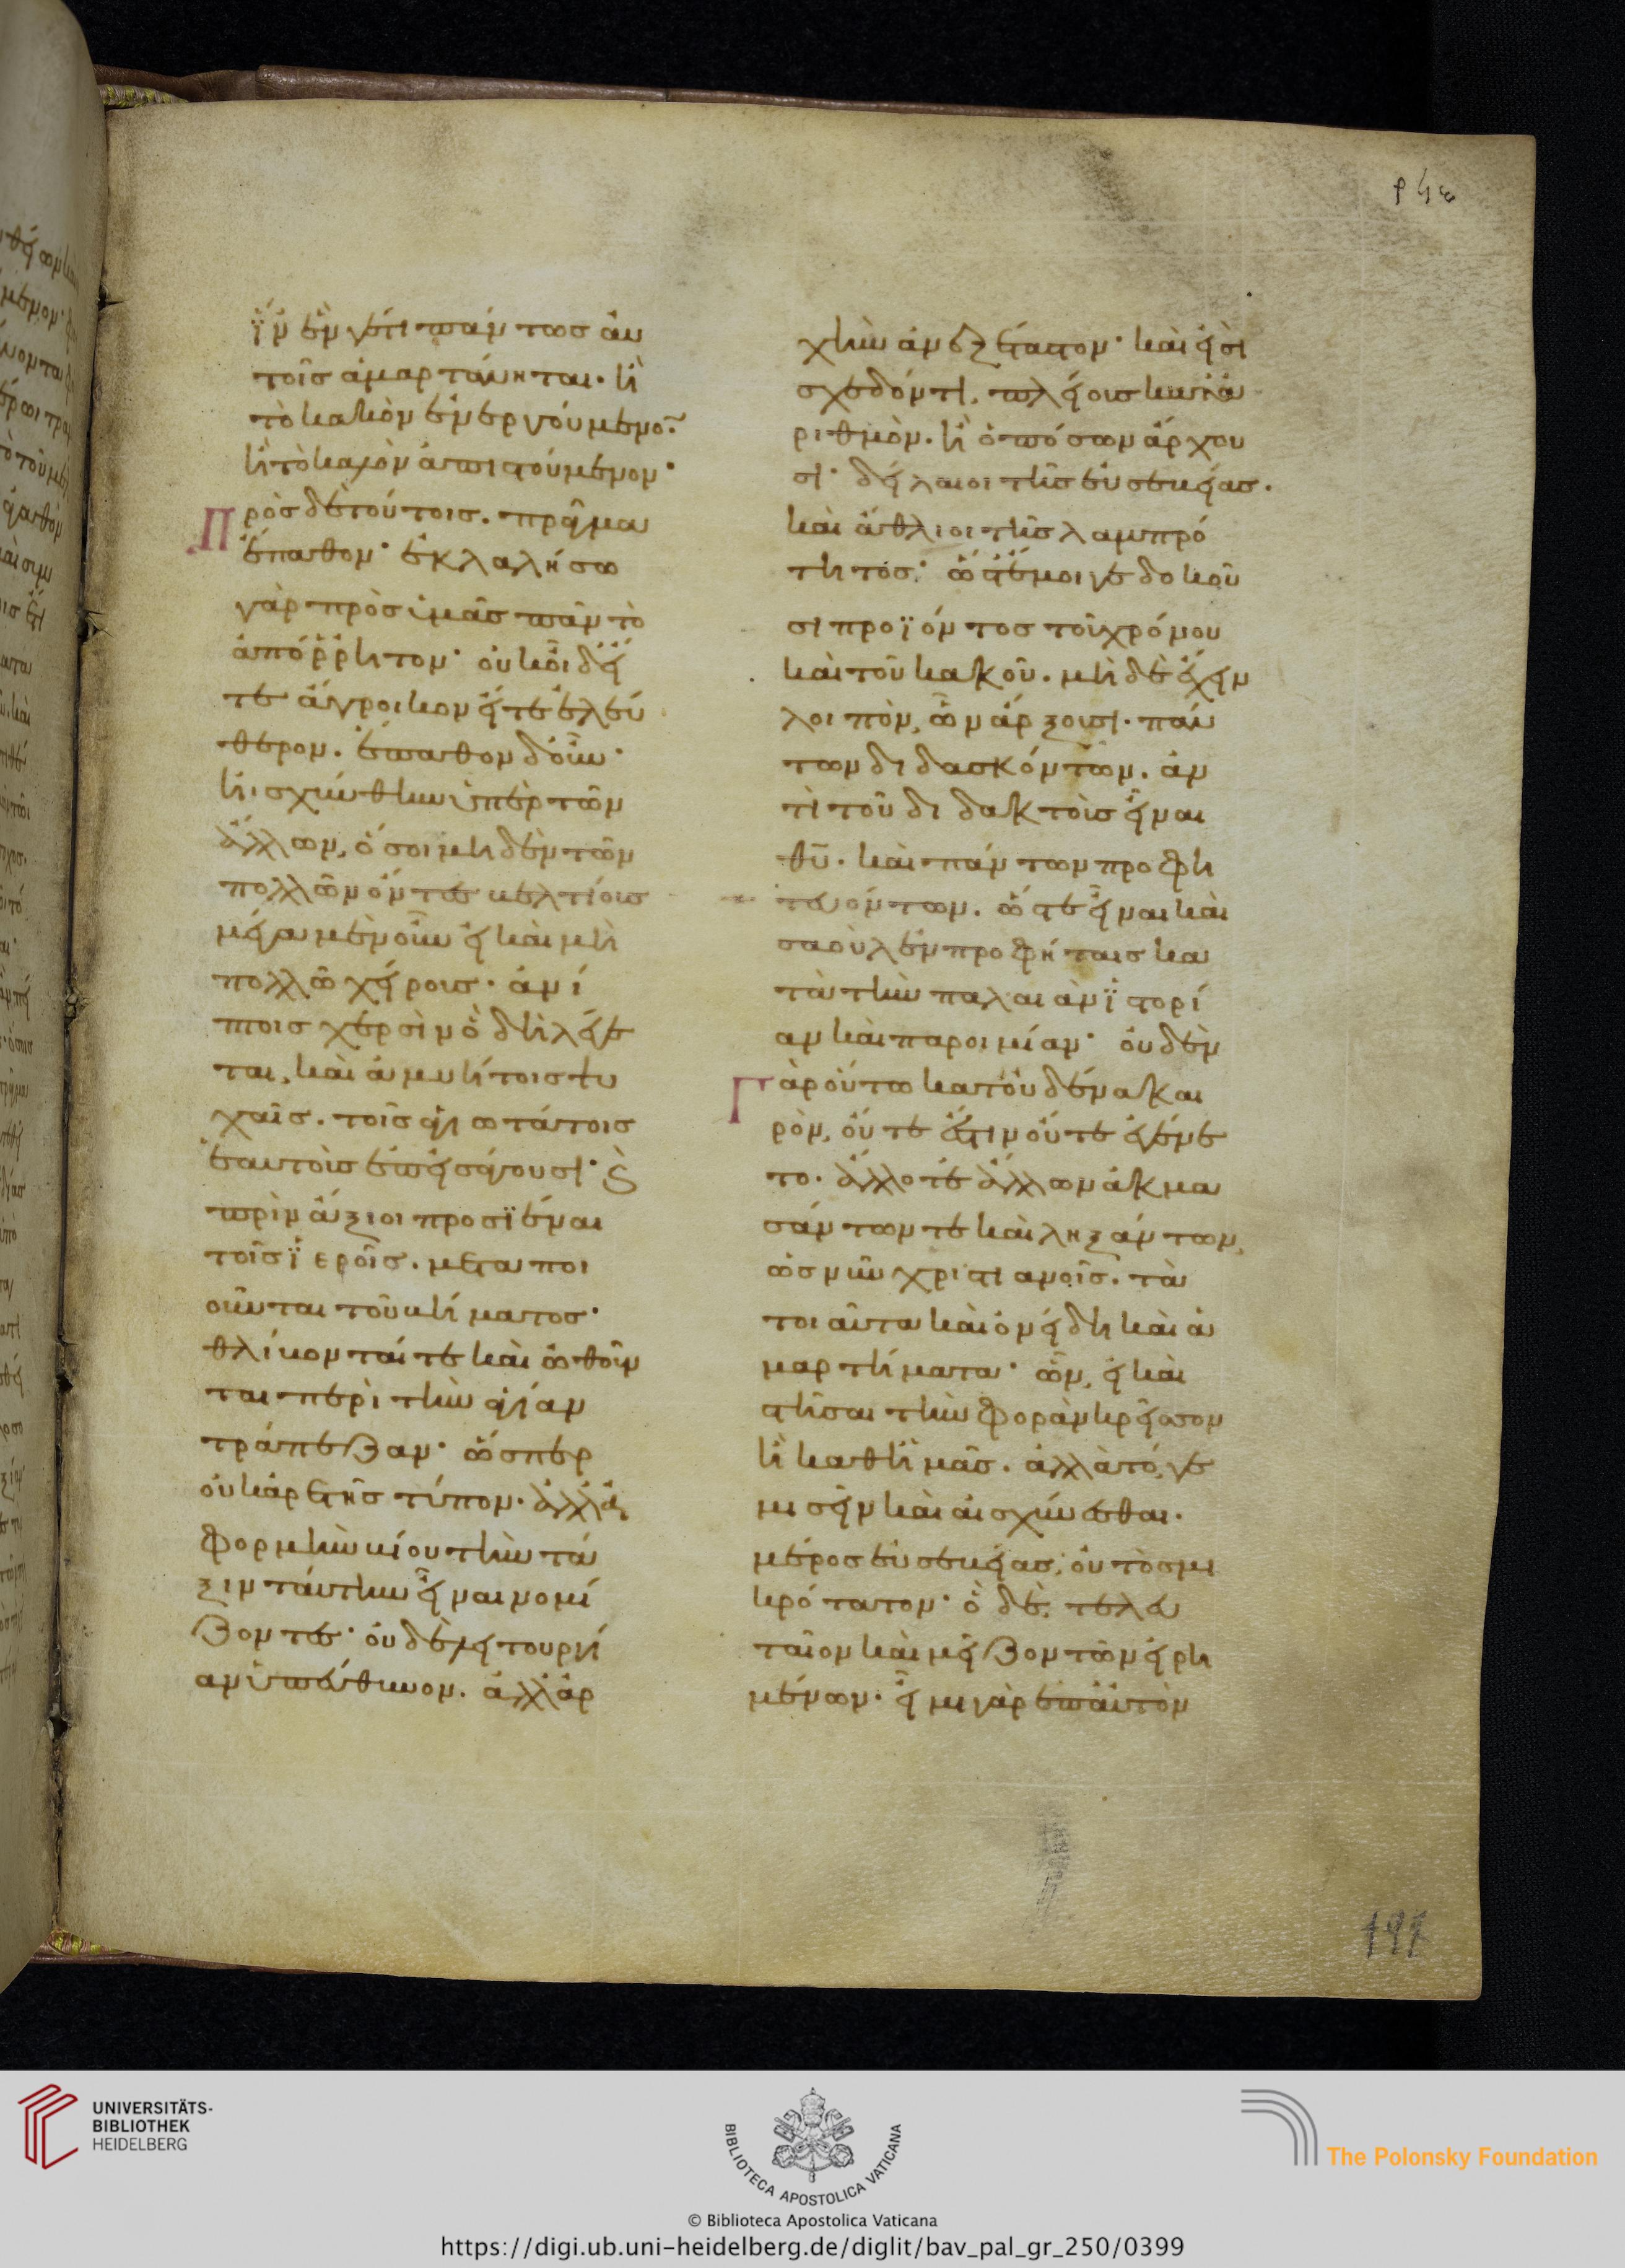 ἵν ἕν γέ τι πάντως αὐ
τοῖς ἁμαρτάνηται· ἢ
τὸ κακὸν ἐνεργούμενο̄·
ἢ τὸ καλὸν ἀπιστούμενον·
Πρὸς δὲ τούτοις. πρᾶγμα
ἔπαθον· ἐκλαλήσω
γὰρ πρὸς ὑμᾶς πᾶν τὸ
ἀπόῤῥητον· οὐκ οἶδ εἴ
τε ἄγροικον εἴτε ἐλεύ
θερον. ἔπαθον δ οὖν·
ἠισχύνθην ὑπὲρ τῶν
ἄλλων, ὅσοι μηδὲν τῶν
πολλῶν ὄντες βελτίους
μέγα μὲν οὖν εἰ καὶ μὴ
πολλῶ χείρους· ἀνί
πτοις χερσὶν ὃ δὴ λέγε
ται, καὶ ἀμυήτοις ψυ
χαῖς. τοῖς ἁγιωτάτοις
ἑαυτοὺς ἐπεισάγουσι· ϗ
πρὶν ἄξιοι προσϊέναι
τοῖς ϊεροῖς. μεταποι
οῦνται τοῦ βήματος·
θλίβονταί τε καὶ ὠθοῦν
ται περὶ τὴν ἁγίαν
τράπεζαν· ὥσπερ
οὐκ ἀρετῆς τύπον· ἀλλ ἀ
φορμὴν βίου τὴν τά
ξιν ταύτην εἶναι νομί
ζοντες· οὐδὲ λειτουργί
αν ὑπεύθυνον. ἀλλ ἀρ
χὴν ἀνεξέταστον· καὶ εἰσὶ
σχεδόν τι, πλείους κατὰ ἀ
ριθμὸν. ἢ ὁπόσων ἄρχου
σι· δείλαιοι τῆς εὐσεβείας.
καὶ ἄθλιοι τῆς λαμπρό
τητος· ὥστέ μοι γε δοκοῦ
σι προϊόντος τοῦ χρόνου
καὶ τοῦ κακοῦ. μὴ δὲ ἔχειν
λοιπὸν, ὧν ἄρξουσι. πάν
των διδασκόντων. ἀν
τὶ τοῦ διδακτοὺς εἶναι
θῡ. καὶ πάντων προφη
τευόντων. ὥστε εἶναι καὶ
σαοὺλ ἐν προφήταις κα
τὰ τὴν παλαιὰν ἱστορί
αν καὶ παροιμίαν· οὐδὲν
Γὰρ οὕτω κατ οὐδένα και
ρὸν, οὔτε ἔστιν οὔτε ἐγένε
το. ἄλλοτε ἄλλων ἀκμα
σάντων τε καὶ ληξάντων,
ὡς νῦν χριστιανοῖς. τὰ
τοιαῦτα καὶ ὀνείδη καὶ ἁ
μαρτήματα· ὧν, εἰ καὶ
στῆσαι τὴν φορὰν κρεῖσσον
ἢ καθ ἡμᾶς. ἀλλὰ τό γε
μισεῖν καὶ αἰσχύνεσθαι.
μέρος εὐσεβείας, οὐ τὸ σμι
κρότατον· ὃ δὲ. τελευ
ταῖον καὶ μεῖζον τῶν εἰρη
μένων· εἶμι γὰρ ἐπ αὐτὸν
ρϟε
197
UNIVERSITÄTS-
BIBLIOTHEK
HEIDELBERG
BIBLIOTECA APOSTOLICA VATICANA
The Polonsky Foundation
© Biblioteca Apostolica Vaticana
https://digi.ub.uni-heidelberg.de/diglit/bav_pal_gr_250/0399